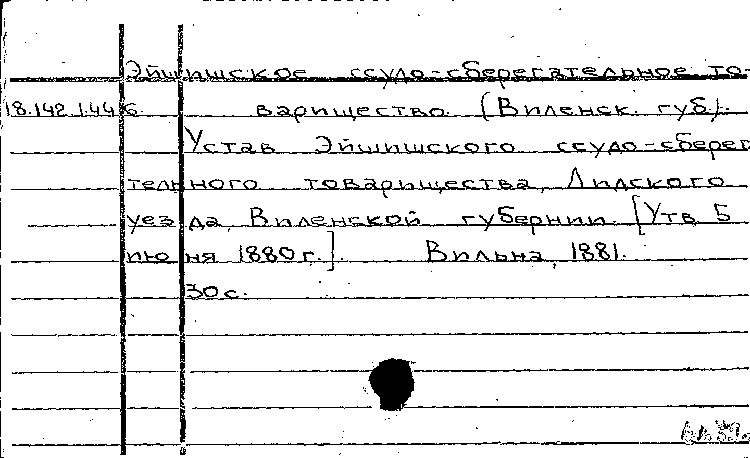 Эйшишское ссудо-сберегательное то-
18.142.1.446. варищество. (Виленск. губ).
Устав Эйшишского ссудо-сберег
тельного товарищества, Лидского
уезда, Виленской губернии. [Утв. 5
июня 1880 г.]. Вильна, 1881.
30 с.